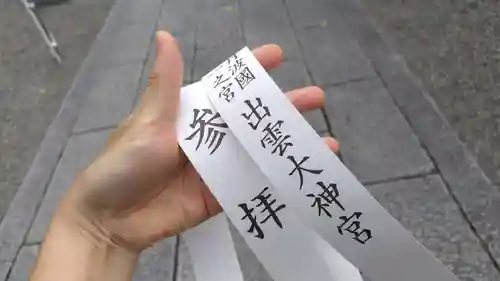 波國
之宮
出雲大神宮
参拝